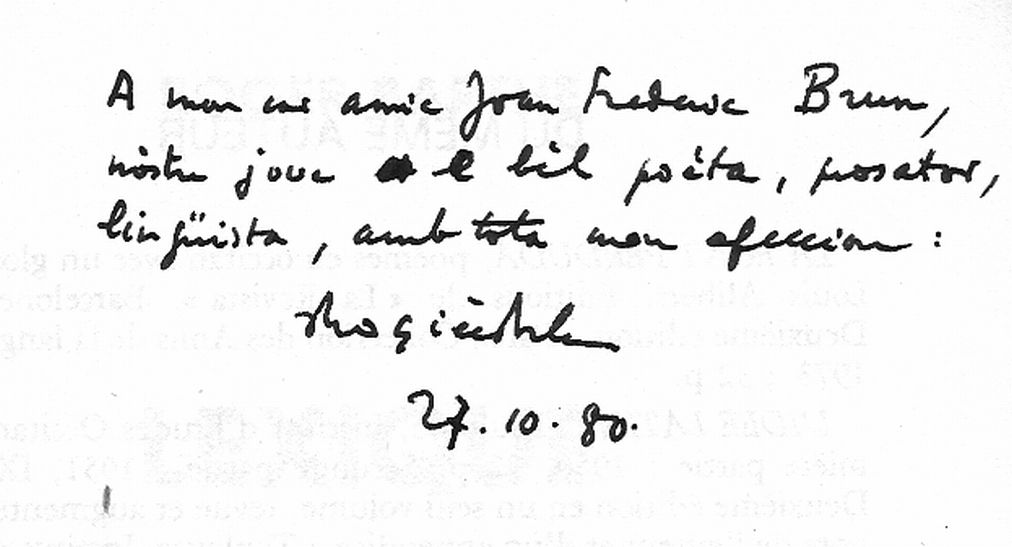 A mon car amic Joan Frederic Brun,
nòstre jove e bèl poèta, prosator,
lingüista, amb tota mon afeccion :
27.10.80.